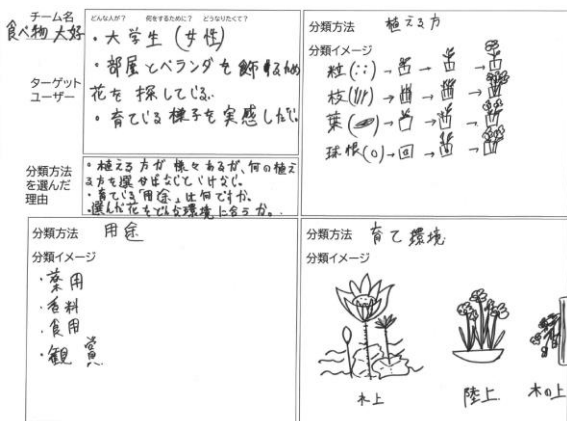 チーム名
食べ物大好
どんな人が? 何をするために? どうなりたくて?
・大学生(女性)
・部屋とベランダを飾するため
花を探している.
・育てる様子を実感したい.
ターゲット
ユーザー
分類方法
を選んだ
理由
・植える方が様々あるが、何の植え
る方を選せばなどいけなじ.
・育ている「用途」は何ですか.
選んだ花をどんな環境に合うか.
分類方法 植える方
分類イメージ
粒
枝
葉
球根
分類方法 用途
分類イメージ
・薬用
・香料
・食用
・観賞
分類方法 育て環境
分類イメージ
水上
陸上
木の上